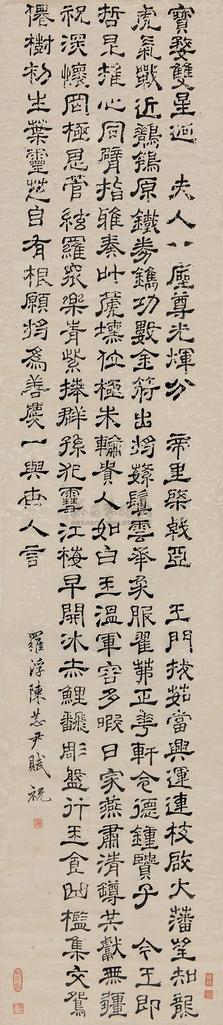 寶婺雙星迥 夫人八座尊光輝分 帝里棨戟亞 王門拔茹當興運連枝啟大藩望知龍
虎氣戰近鶺鴒原鐵券鐫功數金符出將蘇鬟雲翠矣服翟茀正華軒令德鍾賢子 令王即
哲昆雄心同臂指雅奏叶箎壎位極未輸貴人如白玉溫軍容多暇日家燕肅清罇共獻無疆
祝深懷罔極恩管絃羅眾樂青紫捧群孫犯雪江梅早開冰赤鯉飜彫盤行玉食曲檻集文鴛
僊樹初生葉靈芝自有根願將為善慶一與世人言
羅浮陳恭尹賦祝